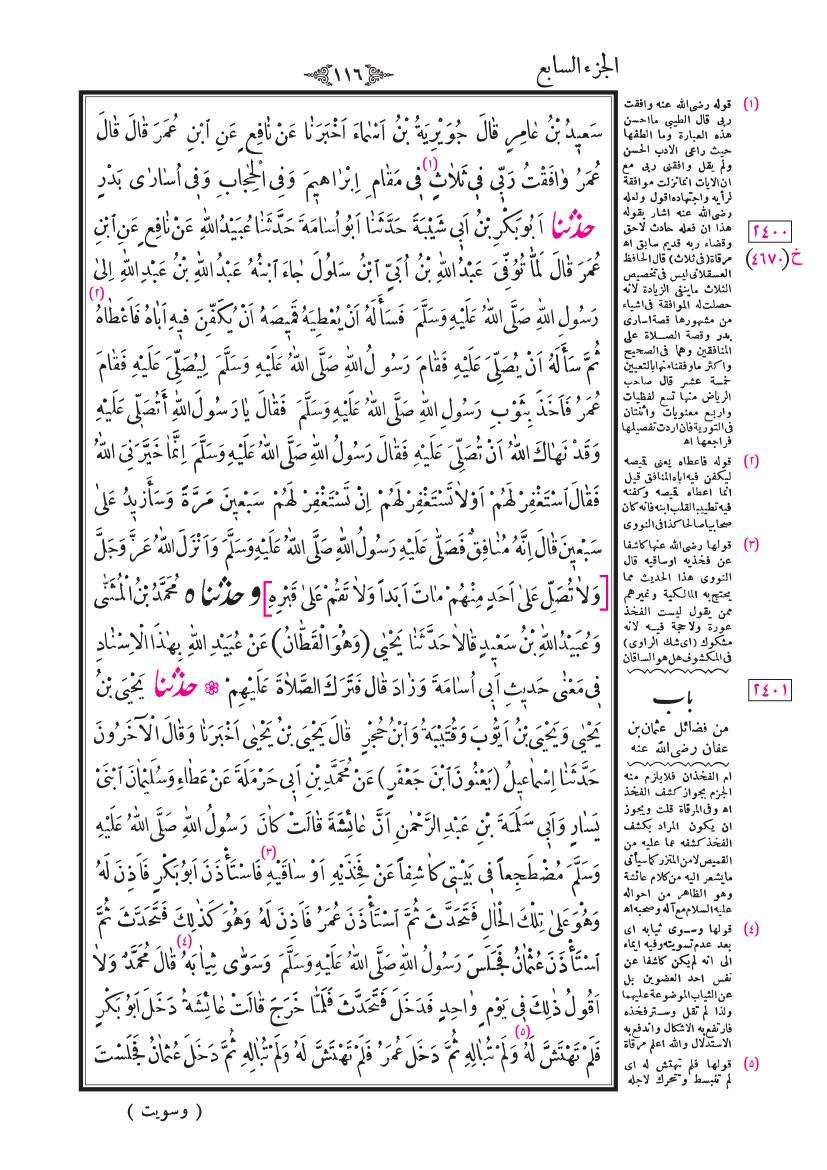 الجزء السابع
١١٦
سَعِيدُ بْنُ عَامِرٍ قَالَ جُوَيْرِيَةُ بْنُ اَسْمَاءَ اَخْبَرَنَا عَنْ نَافِعٍ عَنِ ابْنِ عُمَرَ قَالَ قَالَ
عُمَرُ وَافَقْتُ رَبِّي فِي ثَلَاثٍ (١) فِي مَقَامِ اِبْرَاهِيمَ وَفِي الْحِجَابِ وَفِي اُسَارَى بَدْرٍ
حَدَّثَنَا اَبُو بَكْرِ بْنُ اَبِي شَيْبَةَ حَدَّثَنَا اَبُو اُسَامَةَ حَدَّثَنَا عُبَيْدُ اللهِ عَنْ نَافِعٍ عَنِ ابْنِ
عُمَرَ قَالَ لَمَّا تُوُفِّيَ عَبْدُ اللهِ بْنُ اُبَيٍّ ابْنُ سَلُولَ جَاءَ ابْنُهُ عَبْدُ اللهِ بْنُ عَبْدِ اللهِ اِلَى
رَسُولِ اللهِ صَلَّى اللهُ عَلَيْهِ وَسَلَّمَ فَسَأَلَهُ اَنْ يُعْطِيَهُ قَمِيصَهُ اَنْ يُكَفِّنَ فِيهِ اَبَاهُ فَاَعْطَاهُ (٢)
ثُمَّ سَأَلَهُ اَنْ يُصَلِّيَ عَلَيْهِ فَقَامَ رَسُولُ اللهِ صَلَّى اللهُ عَلَيْهِ وَسَلَّمَ لِيُصَلِّيَ عَلَيْهِ فَقَامَ
عُمَرُ فَاَخَذَ بِثَوْبِ رَسُولِ اللهِ صَلَّى اللهُ عَلَيْهِ وَسَلَّمَ فَقَالَ يَا رَسُولَ اللهِ اَتُصَلِّي عَلَيْهِ
وَقَدْ نَهَاكَ اللهُ اَنْ تُصَلِّيَ عَلَيْهِ فَقَالَ رَسُولُ اللهِ صَلَّى اللهُ عَلَيْهِ وَسَلَّمَ اِنَّمَا خَيَّرَنِيَ اللهُ
فَقَالَ اسْتَغْفِرْ لَهُمْ اَوْ لَا تَسْتَغْفِرْ لَهُمْ اِنْ تَسْتَغْفِرْ لَهُمْ سَبْعِينَ مَرَّةً وَسَأَزِيدُ عَلَى
سَبْعِينَ قَالَ اِنَّهُ مُنَافِقٌ فَصَلَّى عَلَيْهِ رَسُولُ اللهِ صَلَّى اللهُ عَلَيْهِ وَسَلَّمَ وَاَنْزَلَ اللهُ عَزَّ وَجَلَّ
[وَلَا تُصَلِّ عَلَى اَحَدٍ مِنْهُمْ مَاتَ اَبَداً وَلَا تَقُمْ عَلَى قَبْرِهِ] وَحَدَّثَنَاهُ مُحَمَّدُ بْنُ الْمُثَنَّى
وَعُبَيْدُ اللهِ بْنُ سَعِيدٍ قَالَا حَدَّثَنَا يَحْيَى (وَهُوَ الْقَطَّانُ) عَنْ عُبَيْدِ اللهِ بِهٰذَا الْاِسْنَادِ
فِي مَعْنَى حَدِيثِ اَبِي اُسَامَةَ وَزَادَ قَالَ فَتَرَكَ الصَّلَاةَ عَلَيْهِمْ ❁ حَدَّثَنَا يَحْيَى بْنُ
يَحْيَى وَيَحْيَى بْنُ اَيُّوبَ وَقُتَيْبَةُ وَابْنُ حُجْرٍ قَالَ يَحْيَى بْنُ يَحْيَى اَخْبَرَنَا وَقَالَ الْآخَرُونَ
حَدَّثَنَا اِسْمَاعِيلُ (يَعْنُونَ ابْنَ جَعْفَرٍ) عَنْ مُحَمَّدِ بْنِ اَبِي حَرْمَلَةَ عَنْ عَطَاءٍ وَسُلَيْمَانَ ابْنَيْ
يَسَارٍ وَاَبِي سَلَمَةَ بْنِ عَبْدِ الرَّحْمٰنِ اَنَّ عَائِشَةَ قَالَتْ كَانَ رَسُولُ اللهِ صَلَّى اللهُ عَلَيْهِ
وَسَلَّمَ مُضْطَجِعاً فِي بَيْتِي كَاشِفاً عَنْ فَخِذَيْهِ اَوْ سَاقَيْهِ (٣) فَاسْتَأْذَنَ اَبُو بَكْرٍ فَاَذِنَ لَهُ
وَهُوَ عَلَى تِلْكَ الْحَالِ فَتَحَدَّثَ ثُمَّ اسْتَأْذَنَ عُمَرُ فَاَذِنَ لَهُ وَهُوَ كَذٰلِكَ فَتَحَدَّثَ ثُمَّ
اسْتَأْذَنَ عُثْمَانُ فَجَلَسَ رَسُولُ اللهِ صَلَّى اللهُ عَلَيْهِ وَسَلَّمَ وَسَوَّى ثِيَابَهُ (٤) قَالَ مُحَمَّدٌ وَلَا
اَقُولُ ذٰلِكَ فِي يَوْمٍ وَاحِدٍ فَدَخَلَ فَتَحَدَّثَ فَلَمَّا خَرَجَ قَالَتْ عَائِشَةُ دَخَلَ اَبُو بَكْرٍ
فَلَمْ تَهْتَشَّ لَهُ (٥) وَلَمْ تُبَالِهِ ثُمَّ دَخَلَ عُمَرُ فَلَمْ تَهْتَشَّ لَهُ وَلَمْ تُبَالِهِ ثُمَّ دَخَلَ عُثْمَانُ فَجَلَسْتَ
( وسويت )
(١) قوله رضى الله عنه وافقت
ربى قال الطيبى ما احسن
هذه العبارة وما الطفها
حيث راعى الادب الحسن
ولم يقل وافقنى ربى مع
ان الايات انما نزلت موافقة
لرأيه واجتهاده اقول ولعله
رضى الله عنه اشار بقوله
هذا ان فعله حادث لاحق
وقضاء ربه قديم سابق اه
مرقاة (فى ثلاث) قال الحافظ
العسقلانى ليس فى تخصيص
الثلاث ما ينفى الزيادة لانه
حصلت له الموافقة فى اشياء
من مشهورها قصة اسارى
بدر وقصة الصلاة على
المنافقين وهما فى الصحيح
واكثر ما وقفنا منها بالتعيين
خمسة عشر قال صاحب
الرياض منها تسع لفظيات
واربع معنويات واثنتان
فى التورية فان اردت تفصيلها
فراجعها اه
(٢) قوله فاعطاه يعنى قميصه
ليكفن فيه اباه المنافق قيل
انما اعطاه قميصه وكفنه
فيه تطييبا لقلب ابنه فانه كان
صحابيا صالحا كذا فى النووى
(٣) قولها رضى الله عنها كاشفا
عن فخذيه او ساقيه قال
النووى هذا الحديث مما
يحتج به المالكية وغيرهم
ممن يقول ليست الفخذ
عورة ولا حجة فيه لانه
مشكوك (اى شك الراوى)
فى المكشوف هل هو الساقان
٢٤٠٠
خ (٤٦٧٠)
٢٤٠١
باب
من فضائل عثمان بن
عفان رضى الله عنه
ام الفخذان فلا يلزم منه
الجزم بجواز كشف الفخذ
اه وفى المرقاة قلت ويجوز
ان يكون المراد بكشف
الفخذ كشفه عما عليه من
القميص لا من المئزر كما سيأتى
ما يشعر اليه من كلام عائشة
وهو الظاهر من احواله
عليه السلام مع آله وصحبه اه
(٤) قولها وسوى ثيابه اى
بعد عدم تسويته وفيه ايماء
الى انه لم يكن كاشفا عن
نفس احد العضوين بل
عن الثياب الموضوعة عليهما
ولذا لم تقل وستر فخذه
فارتفع به الاشكال واندفع به
الاستدلال والله اعلم مرقاة
(٥) قولها فلم تهتش له اى
لم تنبسط وتتحرك لاجله